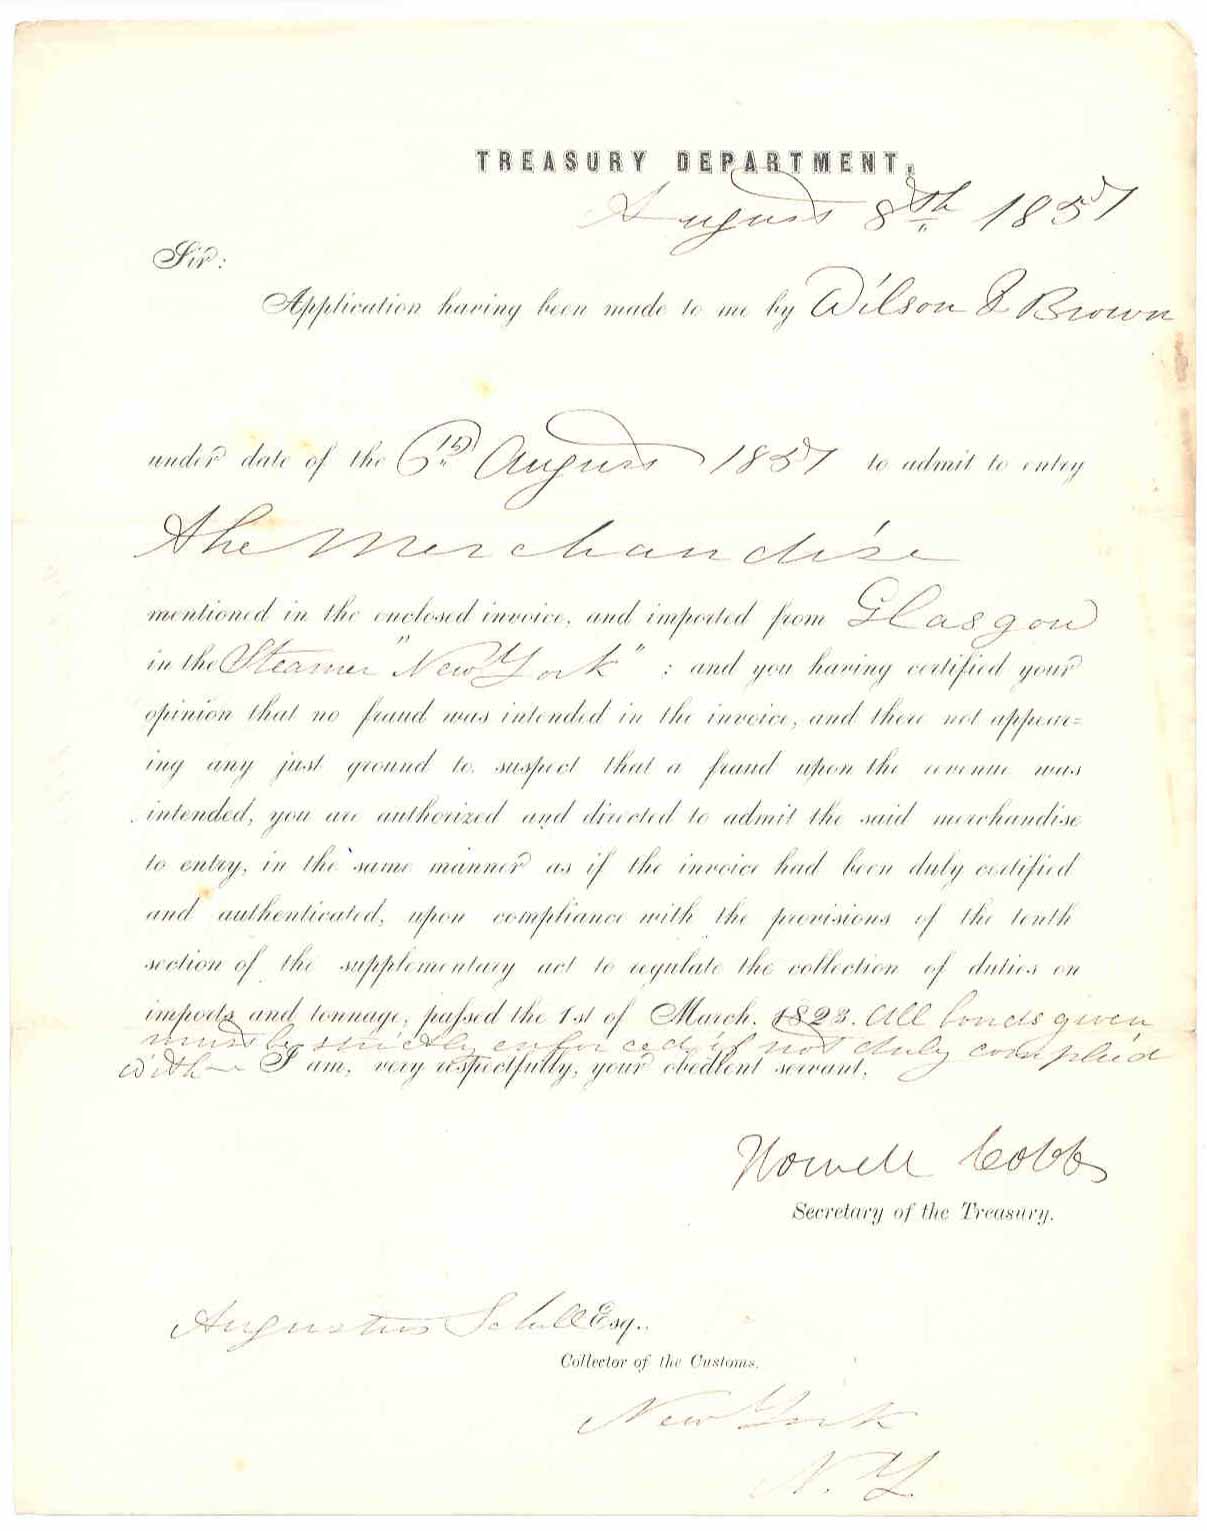 TREASURY DEPARTMENT,
August 8th 1857
Sir:
Application having been made to me by Wilson & Brown
under date of the 6th August 1857 to admit to entry
the Merchandise
mentioned in the enclosed invoice, and imported from Glasgow
in the Steamer "New York" : and you having certified your
opinion that no fraud was intended in the invoice, and there not appear=
ing any just ground to suspect that a fraud upon the revenue was
intended, you are authorized and directed to admit the said merchandise
to entry, in the same manner as if the invoice had been duly certified
and authenticated, upon compliance with the provisions of the tenth
section of the supplementary act to regulate the collection of duties on
imports and tonnage, passed the 1st of March, 1823. All bonds given
must be strictly enforced if not duly complied
with I am, very respectfully, your obedient servant,
Howell Cobb
Secretary of the Treasury.
Augustus Schell Esq..
Collector of the Customs.
New York
N. Y.